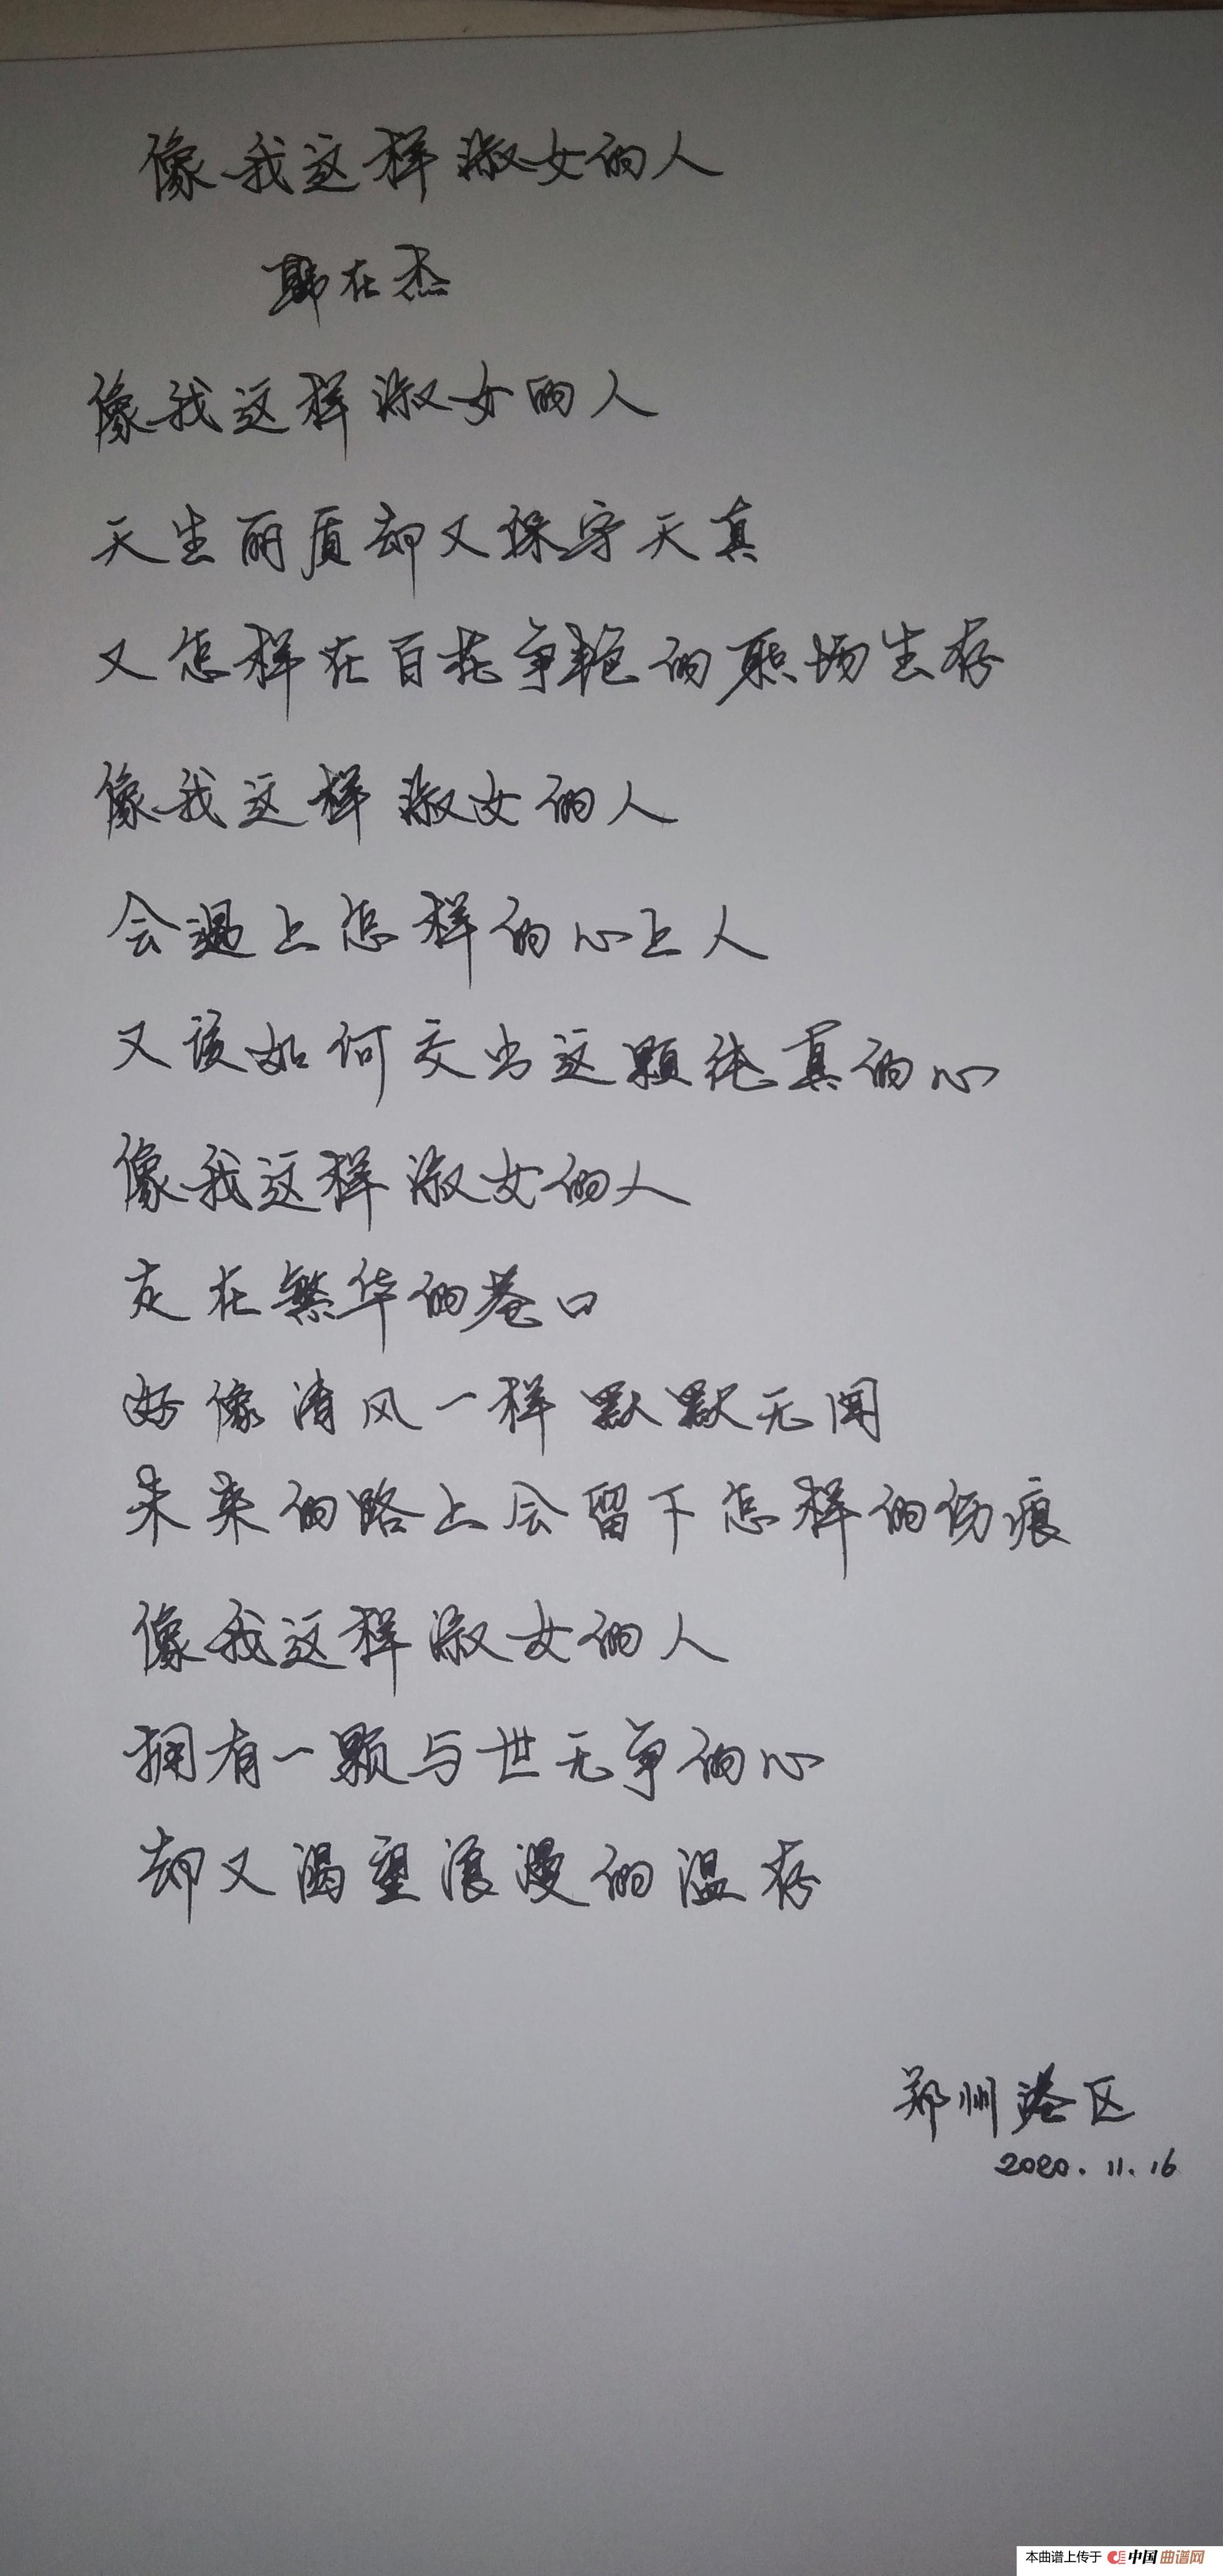 像我这样淑女的人
韩在杰
像我这样淑女的人
天生丽质却又保守天真
又怎样在百花争艳的职场生存
像我这样淑女的人
会遇上怎样的心上人
又该如何交出这颗纯真的心
像我这样淑女的人
走在繁华的巷口
好像清风一样默默无闻
未来的路上会留下怎样的伤痕
像我这样淑女的人
拥有一颗与世无争的心
却又渴望浪漫的温存
郑州港区
2020.11.16
本曲谱上传于 中国曲谱网